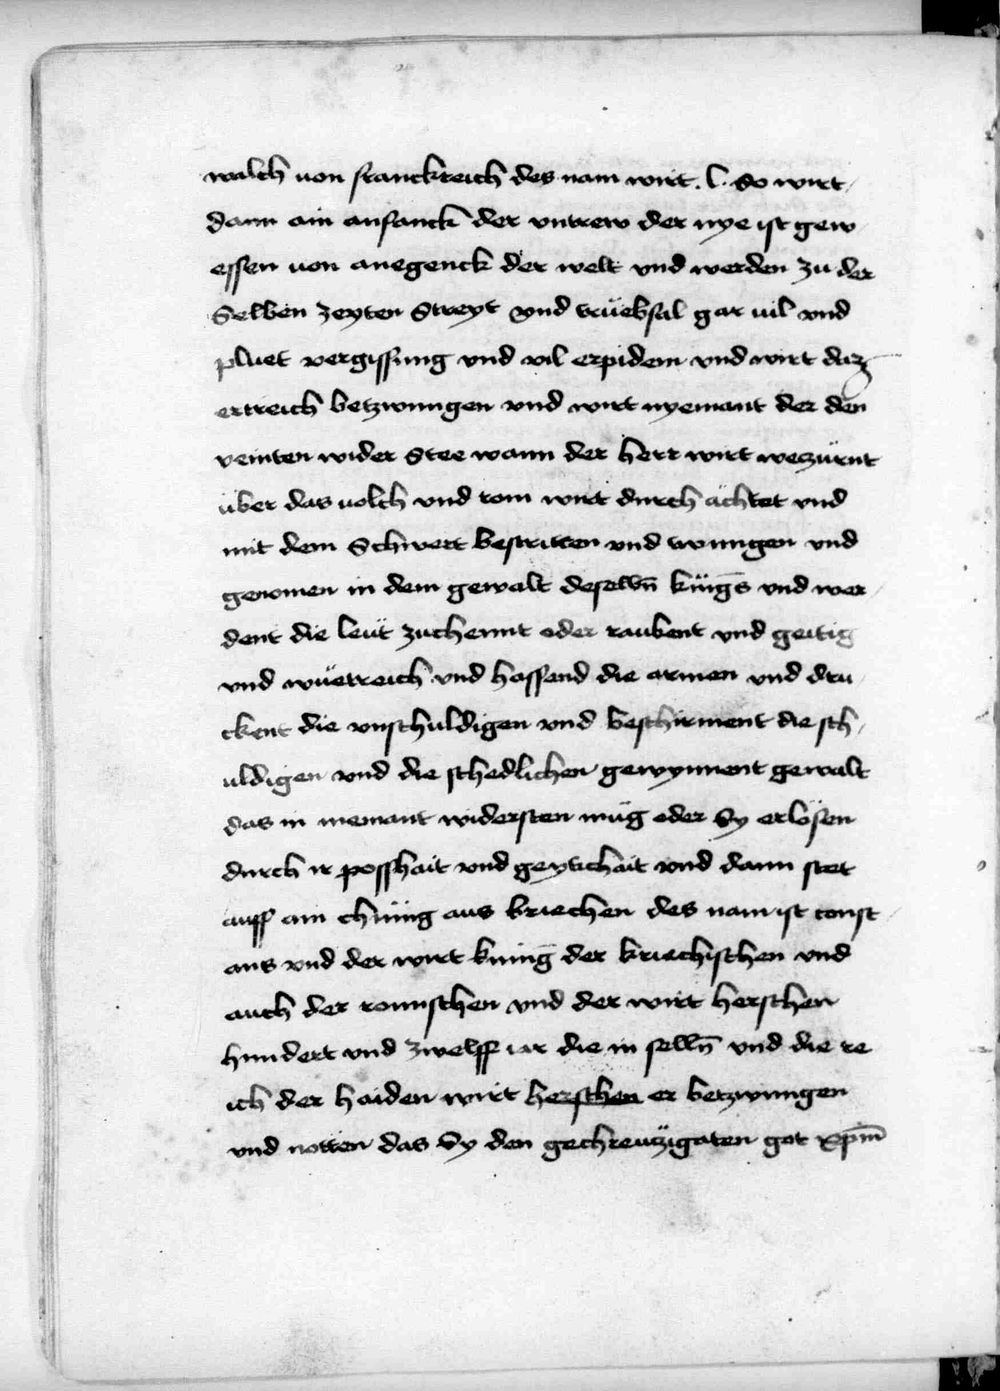 walch uon franckreich des nam wirt . l . so wirt
dann ain anfanck der vntrew der nye ist gew
essen uon anegenck der welt vnd werden zu der
Selben zeyten Streyt vnd trüebsal gar uil vnd
pluet vergissung vnd vil erpidem vnd wirt daz
ertreich betzwungen vnd wirt nyemant der den
veinten wider Stee wann der herr wirt wezürnt
über das uolch vnd rom wirt durch ächtet vnd
mit dem Schwert bestritten vnd twungen vnd
genomen in dem gewalt deselbn̄ küḡs vnd wer
dent die leüt zuchennt oder raubent vnd geitig
vnd wüetreich vnd hassend die armen vnd dru
ckent die vnschuldigen vnd beschirment die sch
uldigen vnd die schedlichen gewynnent gewalt
das in niemant widersten müg oder Sy erlösen
durch ir posshait vnd geytichait vnd dann stet
auff ain chünig aus kriechen des nam ist const
ans vnd der wirt kuniḡ der kriechischen vnd
auch der romischen vnd der wirt herschen
hundert vnd zwelff iar die in selbn̄ vnd die re
ich der haiden wirt herschen er betzwungen
vnd notten das Sy den gechreützigaten got xp̄m